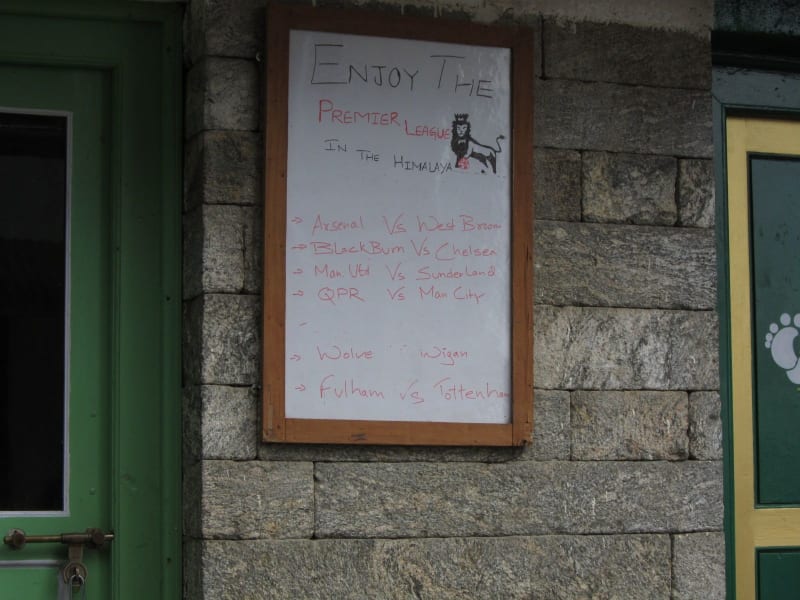 ENJOY THE
PREMIER LEAGUE
IN THE HIMALAYA
→ Arsenal Vs West Brom
→ BlackBurn Vs Chelsea
→ Man Utd Vs Sunderland
→ QPR Vs Man City
-
→ Wolve Wigan
→ Fulham Vs Tottenham